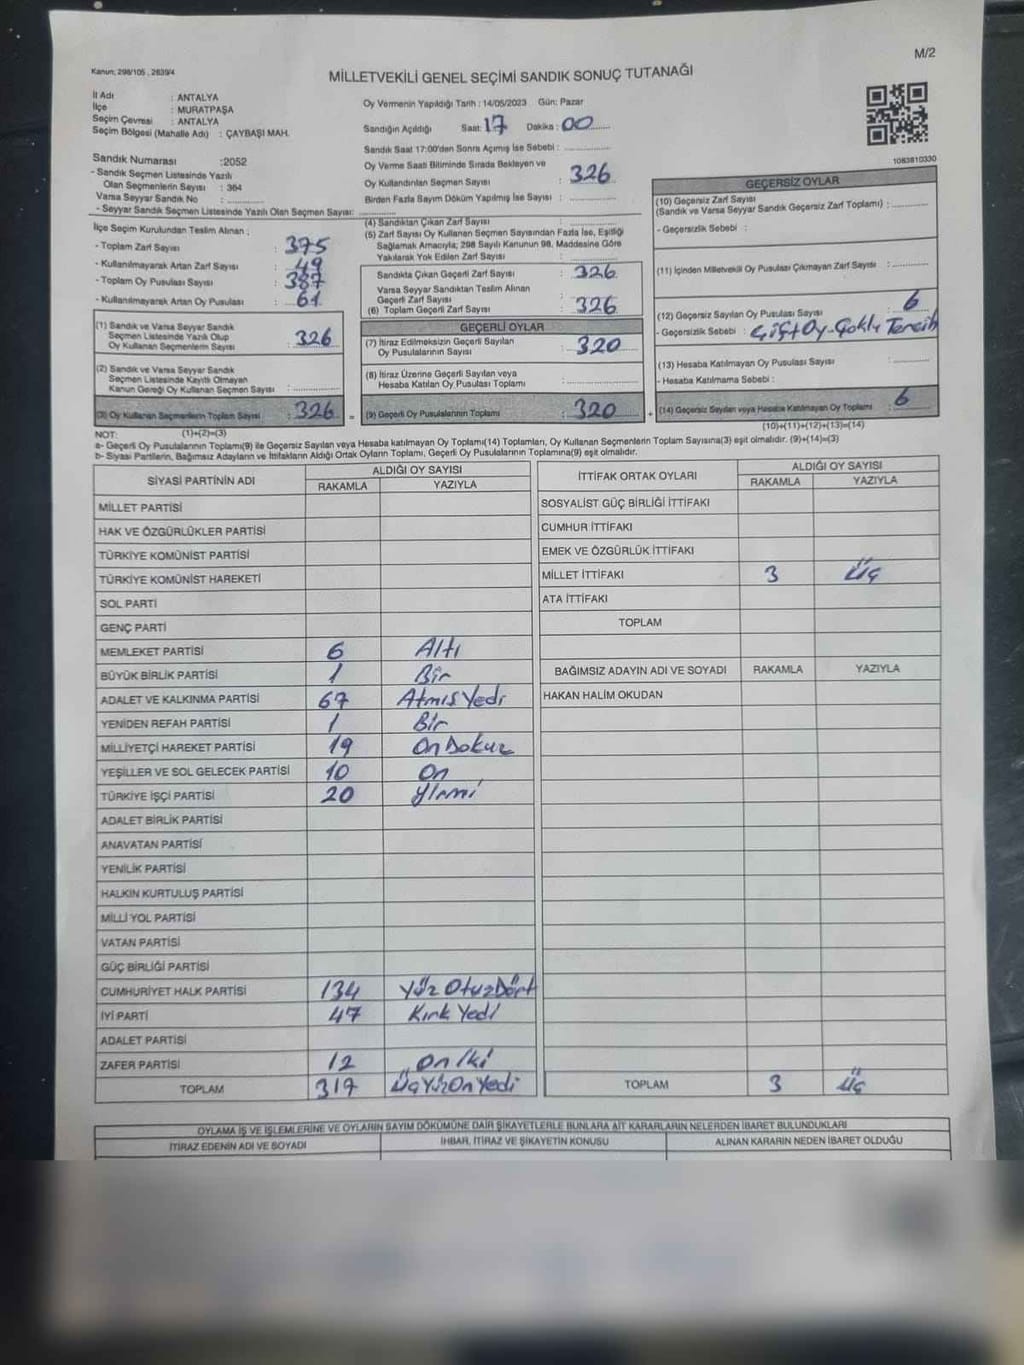 M/2
Kanun: 298/105, 2839/4
MİLLETVEKİLİ GENEL SEÇİMİ SANDIK SONUÇ TUTANAĞI
İl Adı : ANTALYA
İlçe : MURATPAŞA
Seçim Çevresi : ANTALYA
Seçim Bölgesi (Mahalle Adı) : ÇAYBAŞI MAH.
Oy Vermenin Yapıldığı Tarih : 14/05/2023 Gün: Pazar
Sandığın Açıldığı Saat: 17 Dakika: 00
Sandık Saat 17:00'den Sonra Açımış İse Sebebi :
Oy Verme Saati Bitiminde Sırada Bekleyen ve
Oy Kullandırılan Seçmen Sayısı : 326
Birden Fazla Sayım Döküm Yapılmış İse Sayısı :
Sandık Numarası :2052
- Sandık Seçmen Listesinde Yazılı
Olan Seçmenlerin Sayısı : 364
Varsa Seyyar Sandık No :
- Seyyar Sandık Seçmen Listesinde Yazılı Olan Seçmen Sayısı:
İlçe Seçim Kurulundan Teslim Alınan :
- Toplam Zarf Sayısı : 375
- Kullanılmayarak Artan Zarf Sayısı : 49
- Toplam Oy Pusulası Sayısı : 387
- Kullanılmayarak Artan Oy Pusulası : 61
(1) Sandık ve Varsa Seyyar Sandık
Seçmen Listesinde Yazılı Olup
Oy Kullanan Seçmenlerin Sayısı : 326
(2) Sandık ve Varsa Seyyar Sandık
Seçmen Listesinde Kayıtlı Olmayan
Kanun Gereği Oy Kullanan Seçmen Sayısı :
(3) Oy Kullanan Seçmenlerin Toplam Sayısı : 326
(4) Sandıktan Çıkan Zarf Sayısı :
(5) Zarf Sayısı Oy Kullanan Seçmen Sayısından Fazla İse, Eşitliği
Sağlamak Amacıyla; 298 Sayılı Kanunun 98. Maddesine Göre
Yakılarak Yok Edilen Zarf Sayısı :
Sandıkta Çıkan Geçerli Zarf Sayısı : 326
Varsa Seyyar Sandıktan Teslim Alınan
Geçerli Zarf Sayısı :
(6) Toplam Geçerli Zarf Sayısı : 326
GEÇERLİ OYLAR
(7) İtiraz Edilmeksizin Geçerli Sayılan
Oy Pusulalarının Sayısı : 320
(8) İtiraz Üzerine Geçerli Sayılan veya
Hesaba Katılan Oy Pusulası Toplamı :
= (9) Geçerli Oy Pusulalarının Toplamı : 320
1083810330
GEÇERSİZ OYLAR
(10) Geçersiz Zarf Sayısı
(Sandık ve Varsa Seyyar Sandık Geçersiz Zarf Toplamı) :
- Geçersizlik Sebebi :
(11) İçinden Milletvekili Oy Pusulası Çıkmayan Zarf Sayısı :
(12) Geçersiz Sayılan Oy Pusulası Sayısı : 6
- Geçersizlik Sebebi : Çift Oy-Çoklu Tercih
(13) Hesaba Katılmayan Oy Pusulası Sayısı :
- Hesaba Katılmama Sebebi :
+ (14) Geçersiz Sayılan veya Hesaba Katılmayan Oy Toplamı : 6
NOT: (1)+(2)=(3)
(10)+(11)+(12)+(13)=(14)
a- Geçerli Oy Pusulalarının Toplamı(9) ile Geçersiz Sayılan veya Hesaba katılmayan Oy Toplamı(14) Toplamları, Oy Kullanan Seçmenlerin Toplam Sayısına(3) eşit olmalıdır. (9)+(14)=(3)
b- Siyasi Partilerin, Bağımsız Adayların ve İttifakların Aldığı Ortak Oyların Toplamı, Geçerli Oy Pusulalarının Toplamına(9) eşit olmalıdır.
SİYASİ PARTİNİN ADI ALDIĞI OY SAYISI
RAKAMLA YAZIYLA
MİLLET PARTİSİ
HAK VE ÖZGÜRLÜKLER PARTİSİ
TÜRKİYE KOMÜNİST PARTİSİ
TÜRKİYE KOMÜNİST HAREKETİ
SOL PARTİ
GENÇ PARTİ
MEMLEKET PARTİSİ 6 Altı
BÜYÜK BİRLİK PARTİSİ 1 Bir
ADALET VE KALKINMA PARTİSİ 67 Atmış Yedi
YENİDEN REFAH PARTİSİ 1 Bir
MİLLİYETÇİ HAREKET PARTİSİ 19 On Dokuz
YEŞİLLER VE SOL GELECEK PARTİSİ 10 On
TÜRKİYE İŞÇİ PARTİSİ 20
ADALET BİRLİK PARTİSİ
ANAVATAN PARTİSİ
YENİLİK PARTİSİ
HALKIN KURTULUŞ PARTİSİ
MİLLİ YOL PARTİSİ
VATAN PARTİSİ
GÜÇ BİRLİĞİ PARTİSİ
CUMHURİYET HALK PARTİSİ 134 Yüz Otuz Dört
İYİ PARTİ 47 Kırk Yedi
ADALET PARTİSİ
ZAFER PARTİSİ 12 On İki
TOPLAM 317 Üç Yüz On Yedi
İTTİFAK ORTAK OYLARI ALDIĞI OY SAYISI
RAKAMLA YAZIYLA
SOSYALİST GÜÇ BİRLİĞİ İTTİFAKI
CUMHUR İTTİFAKI
EMEK VE ÖZGÜRLÜK İTTİFAKI
MİLLET İTTİFAKI 3 Üç
ATA İTTİFAKI
TOPLAM
BAĞIMSIZ ADAYIN ADI VE SOYADI RAKAMLA YAZIYLA
HAKAN HALİM OKUDAN
TOPLAM 3 Üç
OYLAMA İŞ VE İŞLEMLERİNE VE OYLARIN SAYIM DÖKÜMÜNE DAİR ŞİKAYETLERLE BUNLARA AİT KARARLARIN NELERDEN İBARET BULUNDUKLARI
İTİRAZ EDENİN ADI VE SOYADI İHBAR, İTİRAZ VE ŞİKAYETİN KONUSU ALINAN KARARIN NEDEN İBARET OLDUĞU